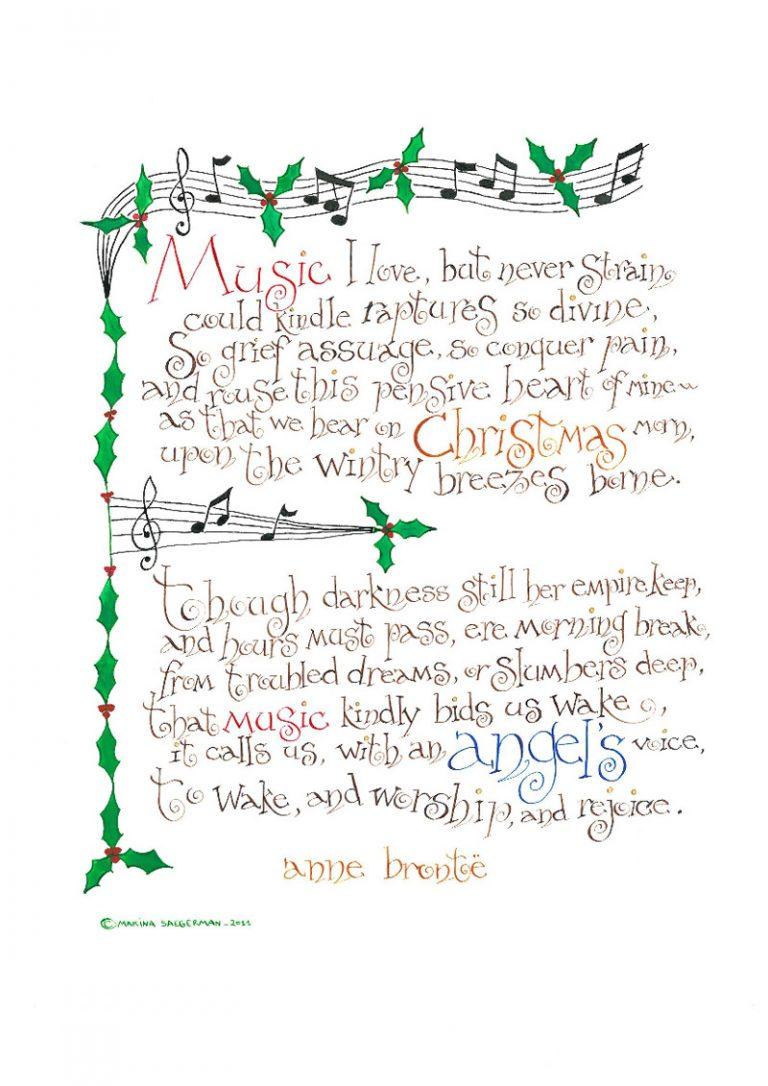 Music I love, but never strain
could kindle raptures so divine,
So grief assuage, so conquer pain,
and rouse this pensive heart of mine~
as that we hear on Christmas morn,
upon the wintry breezes borne.
though darkness still her empire keep,
and hours must pass, ere morning break,
from troubled dreams, or slumbers deep,
that music kindly bids us wake,
it calls us, with an angel's voice,
to wake, and worship, and rejoice.
anne brontë
© MARINA SAEGERMAN - 2011